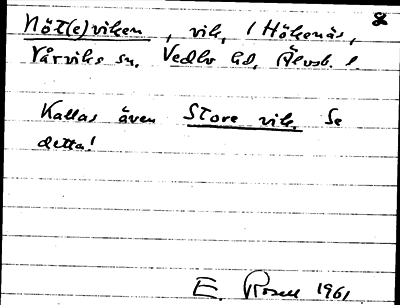 Nöt(e)viken, vik, / Hökenäs,
Vårviks sn. Vedbo hd, Älvsb. l.
Kallas även Store vik. Se
detta!
E. Rosell 1961